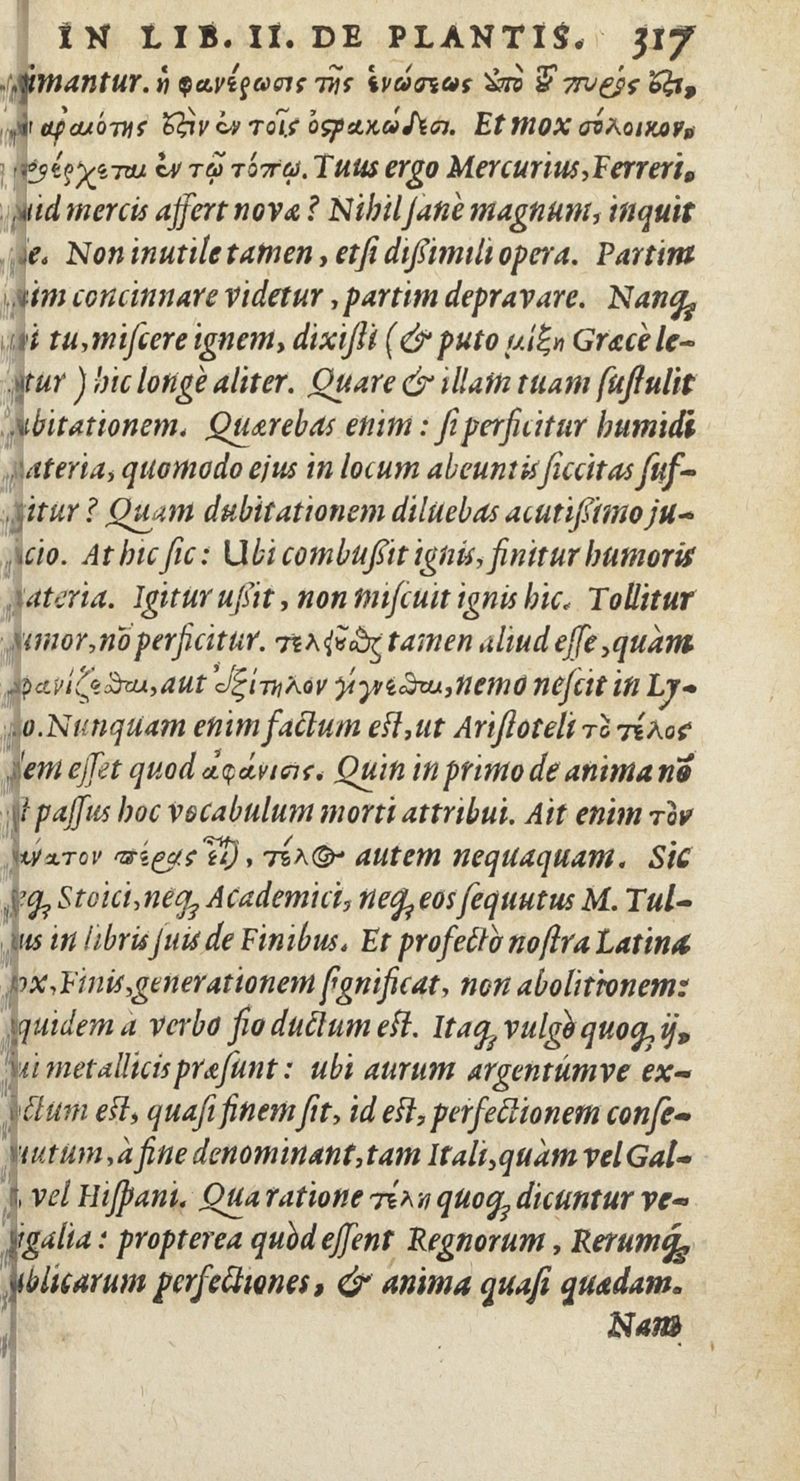 IN LIB. II. DE PLANTIS. 317
imantur. ἡ φανέρωσις τῆς ἑνώσεως ὑπὸ τοῦ πυρός ἐστι,
ἀραιότης ἐστὶν ἐν τοῖς ὀστρακώδεσι. Et mox σόλοικον,
ἐν τῷ τόπῳ. Tuus ergo Mercurius, Ferreri,
uid mercis affert novæ? Nihil sanè magnum, inquit
e. Non inutile tamen, etsi dißimili opera. Partim
im concinnare videtur, partim depravare. Nanq;
i tu, miscere ignem, dixisti (& puto μίξη Græcè le-
tur) hic longè aliter. Quare & illam tuam sustulit
bitationem. Quærebas enim: si perficitur humidi
ateria, quomodo ejus in locum abeuntis siccitas suf-
itur? Quam dubitationem diluebas acutißimo ju-
cio. At hic sic: Ubi combußit ignis, finitur humoris
ateria. Igitur ußit, non miscuit ignis hic. Tollitur
umor, nō perficitur. τελεῖσθαι tamen aliud esse, quàm
φανίζεσθαι, aut ἐξίτηλον γίγνεσθαι, nemo nescit in Ly-
o. Nunquam enim factum est, ut Aristoteli τὸ τέλος
em esset quod ἀφάνισις. Quin in primo de anima nō
t passus hoc vocabulum morti attribui. Ait enim τὸν
νατον πέρας εἶναι, τέλος autem nequaquam. Sic
eq; Stoici, neq; Academici, neq; eos sequutus M. Tul-
us in libris suis de Finibus. Et profectò nostra Latina
ox, Finis, generationem significat, non abolitionem:
quidem à verbo fio ductum est. Itaq; vulgò quoq; ij,
ui metallicis præsunt: ubi aurum argentúmve ex-
ctum est, quasi finem sit, id est, perfectionem conse-
uutum, à fine denominant, tam Itali, quàm vel Gal-
, vel Hispani. Qua ratione τέλη quoq; dicuntur ve-
igalia: propterea quòd essent Regnorum, Rerumq́;
ublicarum perfectiones, & anima quasi quædam.
Nam